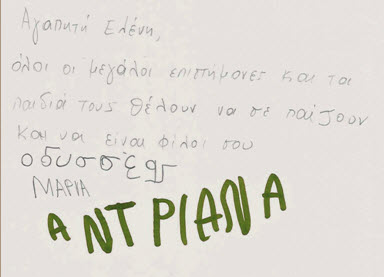 Αγαπητή Ελένη,
όλοι οι μεγάλοι επιστήμονες και τα
παιδιά τους θέλουν να σε παίξουν
και να είναι φίλοι σου
οδυσσέας
ΜΑΡΙΑ
ΑΝΤΡΙΑΝΑ